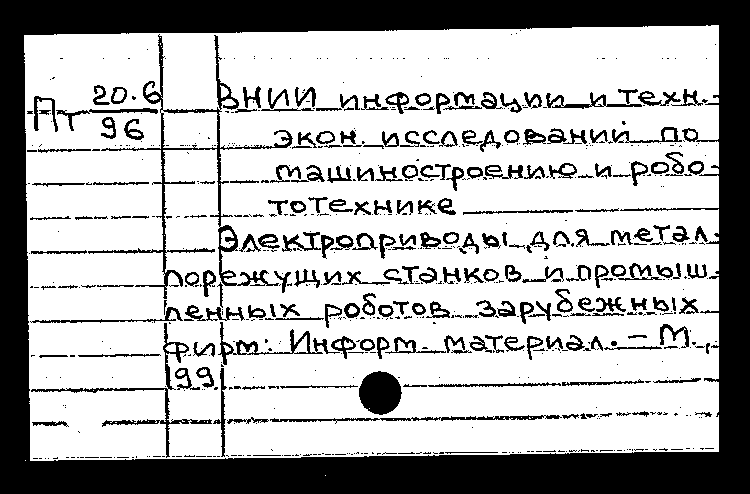 Пт 20.6
96
ВНИИ информации и техн.-
экон. исследований по
машиностроению и робо-
тотехнике
Электроприводы для метал-
лорежущих станков и промыш-
ленных роботов зарубежных
фирм: Информ. материал. – М.,
199